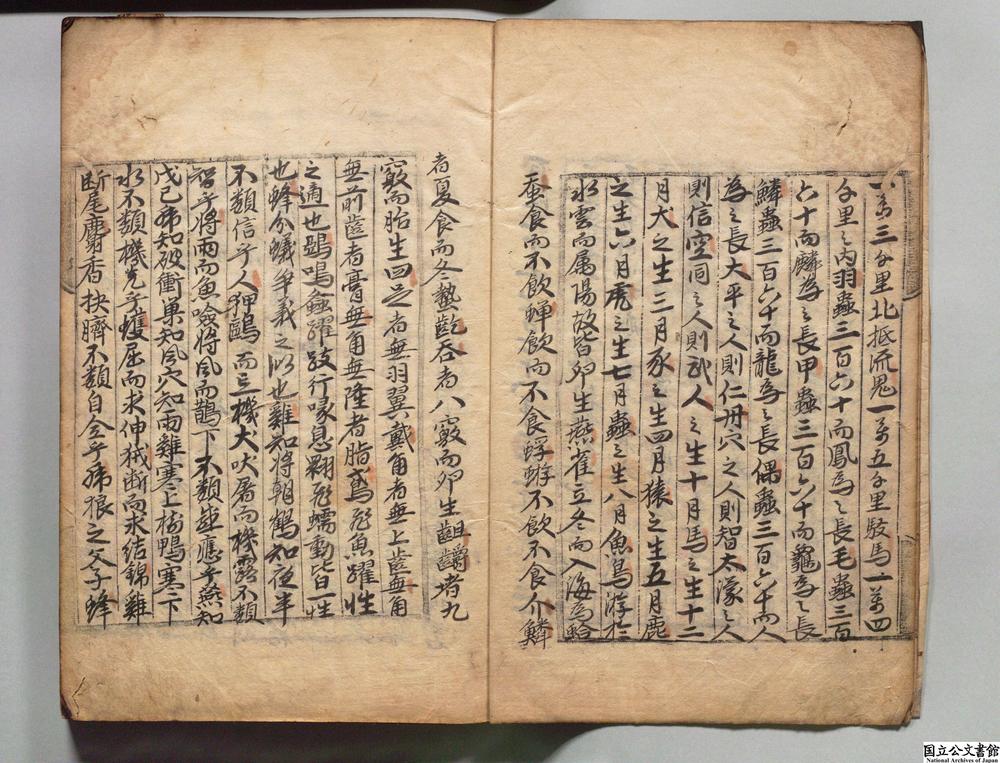 八万三千里北抵流鬼一万五千里駮馬一万四
千里之内羽蟲三百六十而鳳為之長毛蟲三百
六十而麟為之長甲蟲三百六十而龜為之長
鱗蟲三百六十而龍為之長倮蟲三百六十而人
為之長大平之人則仁丹穴之人則智太濛之人
則信空同之人則武人之生十月馬之生十二
月犬之生三月豕之生四月猿之生五月鹿
之生六月虎之生七月蟲之生八月魚鳥游於
水雲而属陽故皆卵生燕雀立冬而入海為蛤
蚕食而不飲蟬飲而不食蜉蝣不飲不食介鱗
者夏食而冬蟄齕吞者八竅而卵生齟嚼者九
竅而胎生四足者無羽翼戴角者無上齒無角
無前齒者膏無角無後者脂鳶飛魚躍性
之適也鶂鳴螽躍跂行喙息翾飛蠕動皆一性
也蜂分蟻爭義之似也雞知將朝鶴知夜半
不類信乎人狎鷗而忘機犬吠屠而機露不類
智乎將雨而魚噞將風而鵲下不類感應乎燕知
戊己虎知破衝巢知風穴知雨雞寒上樹鴨寒下
水不類機先乎蠖屈而求伸蚓断而求結錦雞
断尾麝香抉臍不類自全乎虎狼之父子蜂
国立公文書館
National Archives of Japan